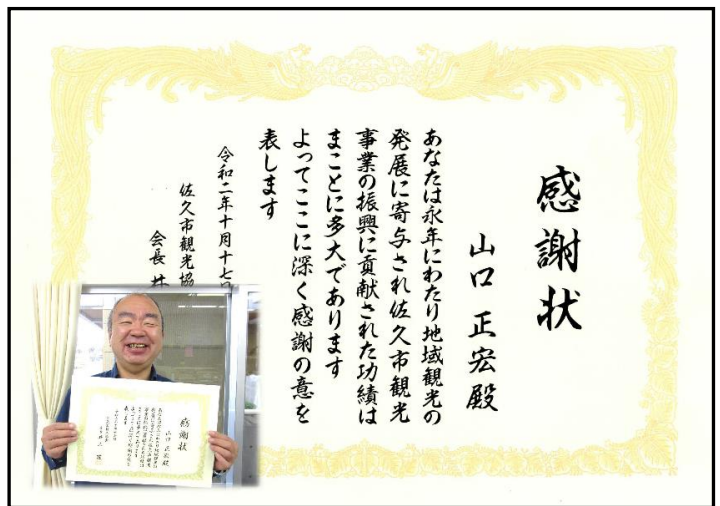 感謝状
山口 正宏殿
あなたは永年にわたり地域観光の
発展に寄与され佐久市観光
事業の振興に貢献された功績は
まことに多大であります
よってここに深く感謝の意を
表します
令和二年十月十七日
佐久市観光協
会長
感謝状
山口 正宏殿